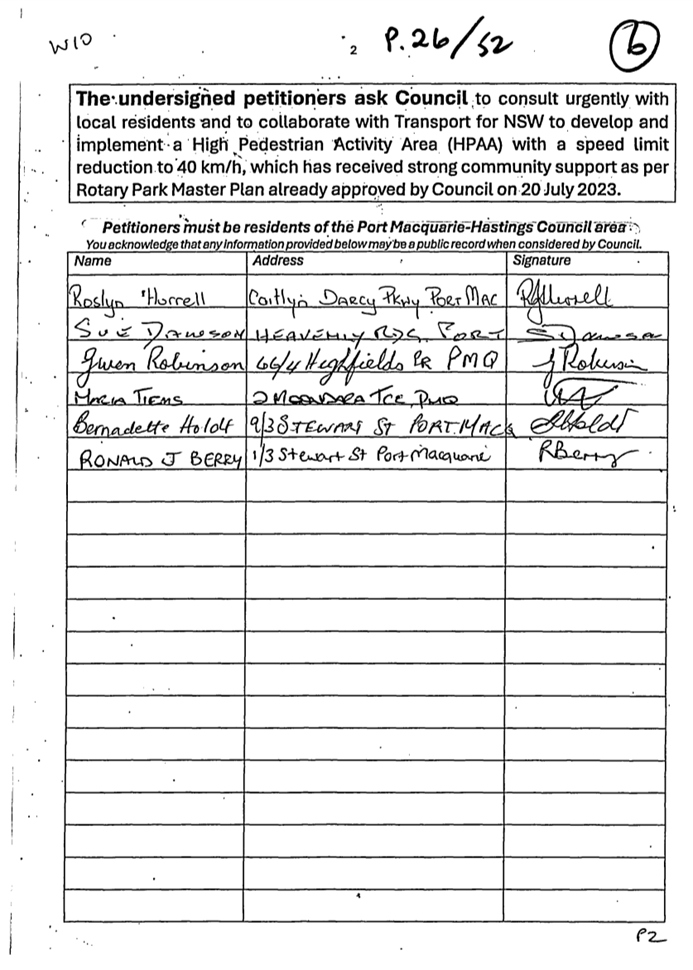 W10
2
P.26/52
6
The undersigned petitioners ask Council to consult urgently with
local residents and to collaborate with Transport for NSW to develop and
implement a High Pedestrian Activity Area (HPAA) with a speed limit
reduction to 40 km/h, which has received strong community support as per
Rotary Park Master Plan already approved by Council on 20 July 2023.
Petitioners must be residents of the Port Macquarie-Hastings Council area
You acknowledge that any information provided below may be a public record when considered by Council.
Name Address Signature
Roslyn Horrell Caitlyn Darcy Pkwy PORT MAC
SUE DAWSON HEAVENLY RDG. PORT S Dawson
Gwen Robinson 66/4 Highfields PMQ G Robinson
MARIA TIEMS 2 MOONDARA TCE, PMQ
Bernadette Holdt 9/3 STEWART ST PORT.MACQ Holdt
RONALD J BERRY 1/3 Stewart St Port Macquarie RBerry
P2